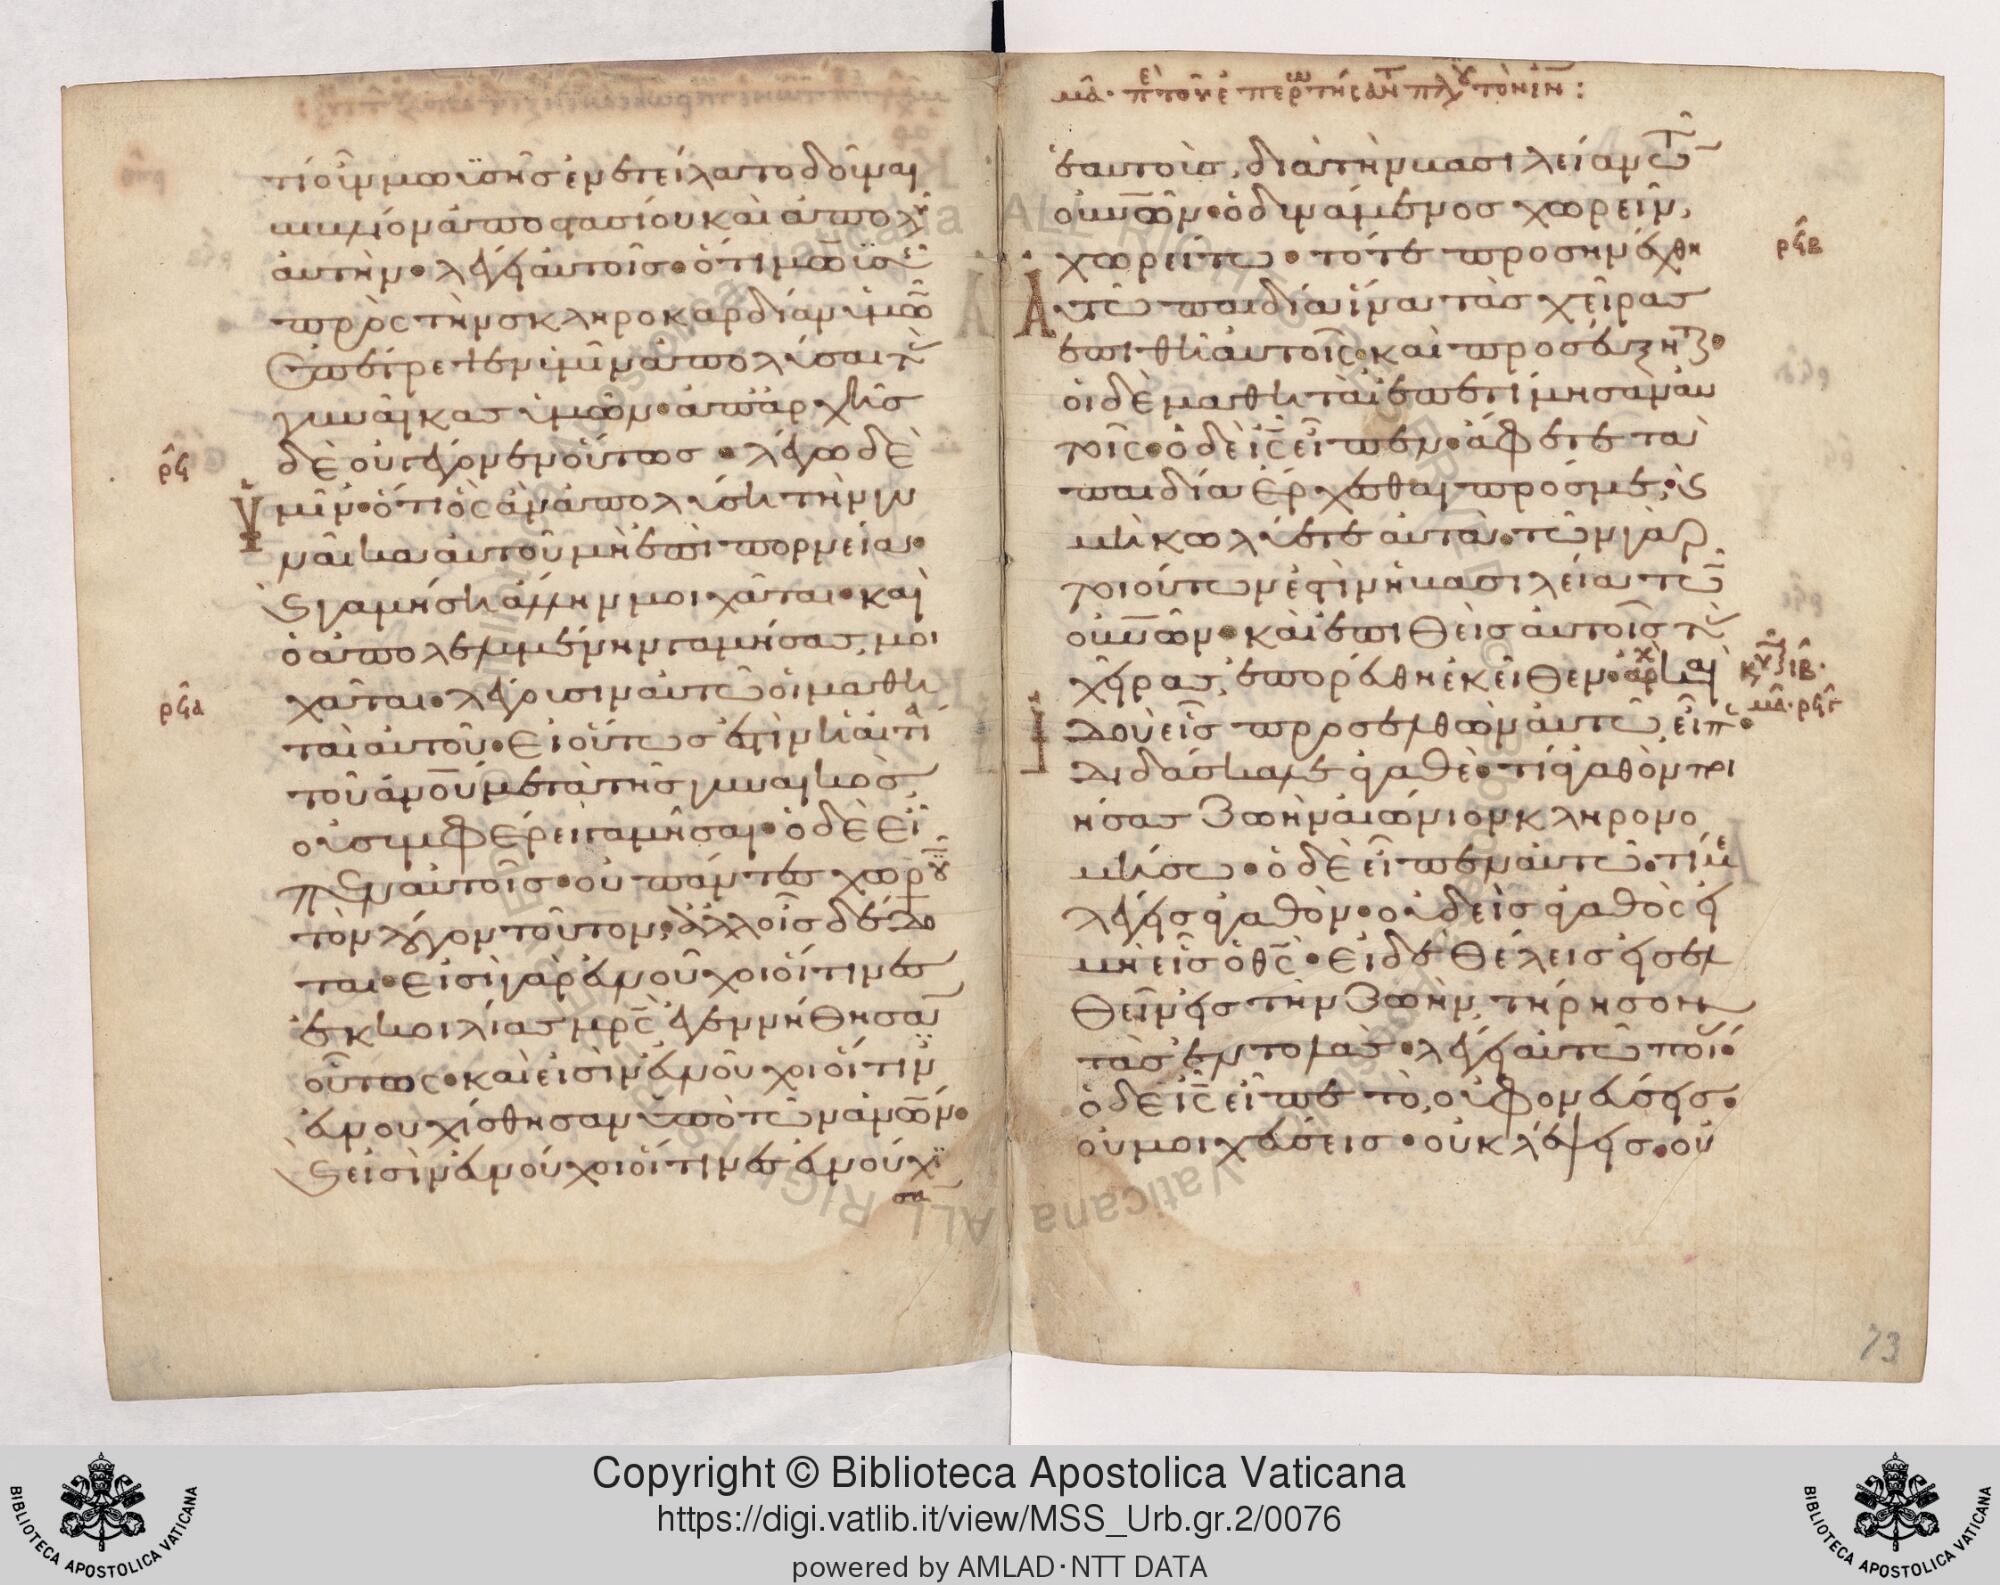 τί οὖν μωϋσῆς ἐνετείλατο δοῦναι
βιβλίον ἀποστασίου καὶ ἀπολῦ
αὐτήν· λέγει αὐτοῖς· ὅτι μωϋσῆς
πρὸς τὴν σκληροκαρδίαν ὑμῶν
ἐπέτρεψεν ὑμῖν ἀπολῦσαι τὰς
γυναῖκας ὑμῶν· ἀπ' ἀρχῆς
δὲ οὐ γέγονεν οὕτως· λέγω δὲ
ρϟ
Ὑμῖν· ὅτι ὃς ἂν ἀπολύσῃ τὴν γυ
ναῖκα αὐτοῦ μὴ ἐπὶ πορνεία·
καὶ γαμήσῃ ἄλλην μοιχᾶται· καὶ
ὁ ἀπολελυμένην γαμήσας, μοι
χᾶται· λέγουσιν αὐτῶ οἱ μαθη
ρϟα
ταὶ αὐτοῦ· εἰ οὕτως ἐστὶν ἡ αἰτία
τοῦ ἀνου μετὰ τῆς γυναικὸς,
οὐ συμφέρει γαμῆσαι· ὁ δὲ εἶ
πεν αὐτοῖς· οὐ πάντες χωροῦ
τὸν λόγον τοῦτον, ἀλλ' οἷς δέδο
ται· εἰσὶ γὰρ εὐνοῦχοι οἵτινες
ἐκ κοιλίας μρς ἐγεννήθησαν
οὕτως· καὶ εἰσὶν εὐνοῦχοι οἵτινες
εὐνουχίσθησαν ὑπὸ τῶν ἀνων·
καὶ εἰσὶν εὐνοῦχοι οἵτινες εὐνούχι
σαν
ἑαυτοὺς, διὰ τὴν βασιλείαν τῶν
οὐνῶν· ὁ δυνάμενος χωρεῖν,
χωρείτω· τότε προσηνέχθη
ρϟβ
Αὐτῶ παιδία ἵνα τὰς χεῖρας
ἐπιθῆ αὐτοῖς· καὶ προσεύξηται·
οἱ δὲ μαθηταὶ ἐπετίμησαν αὐ
τοῖς· ὁ δὲ ις εἶπεν· ἄφετε τὰ
παιδία ἔρχεσθαι πρός με, καὶ
μὴ κωλύετε αὐτά· τῶν γὰρ
τοιούτων ἐστὶν ἡ βασιλεία τῶν
οὐνῶν· καὶ ἐπιθεὶς αὐτοῖς τὰς
χεῖρας, ἐπορεύθη ἐκεῖθεν· ἀρχ καὶ
ἰδοὺ εἷς προσελθὼν αὐτῶ, εἶπε·
διδάσκαλε ἀγαθὲ· τί ἀγαθὸν ποι
ήσας ζωὴν αἰώνιον κληρονο
μήσω· ὁ δὲ εἶπεν αὐτῶ· τί με
λέγεις ἀγαθόν· οὐδεὶς ἀγαθὸς εἰ
μὴ εἷς ὁ θς· εἰ δὲ θέλεις εἰσελ
θεῖν εἰς τὴν ζωὴν, τήρησον
τὰς ἐντολάς· λέγει αὐτῶ ποί·
ὁ δὲ ις εἶπε τὸ, οὐ φονεύσεις·
οὐ μοιχεύσεις· οὐ κλέψεις· οὐ
73
Copyright © Biblioteca Apostolica Vaticana
https://digi.vatlib.it/view/MSS_Urb.gr.2/0076
powered by AMLAD·NTT DATA
BIBLIOTECA APOSTOLICA VATICANA
BIBLIOTECA APOSTOLICA VATICANA